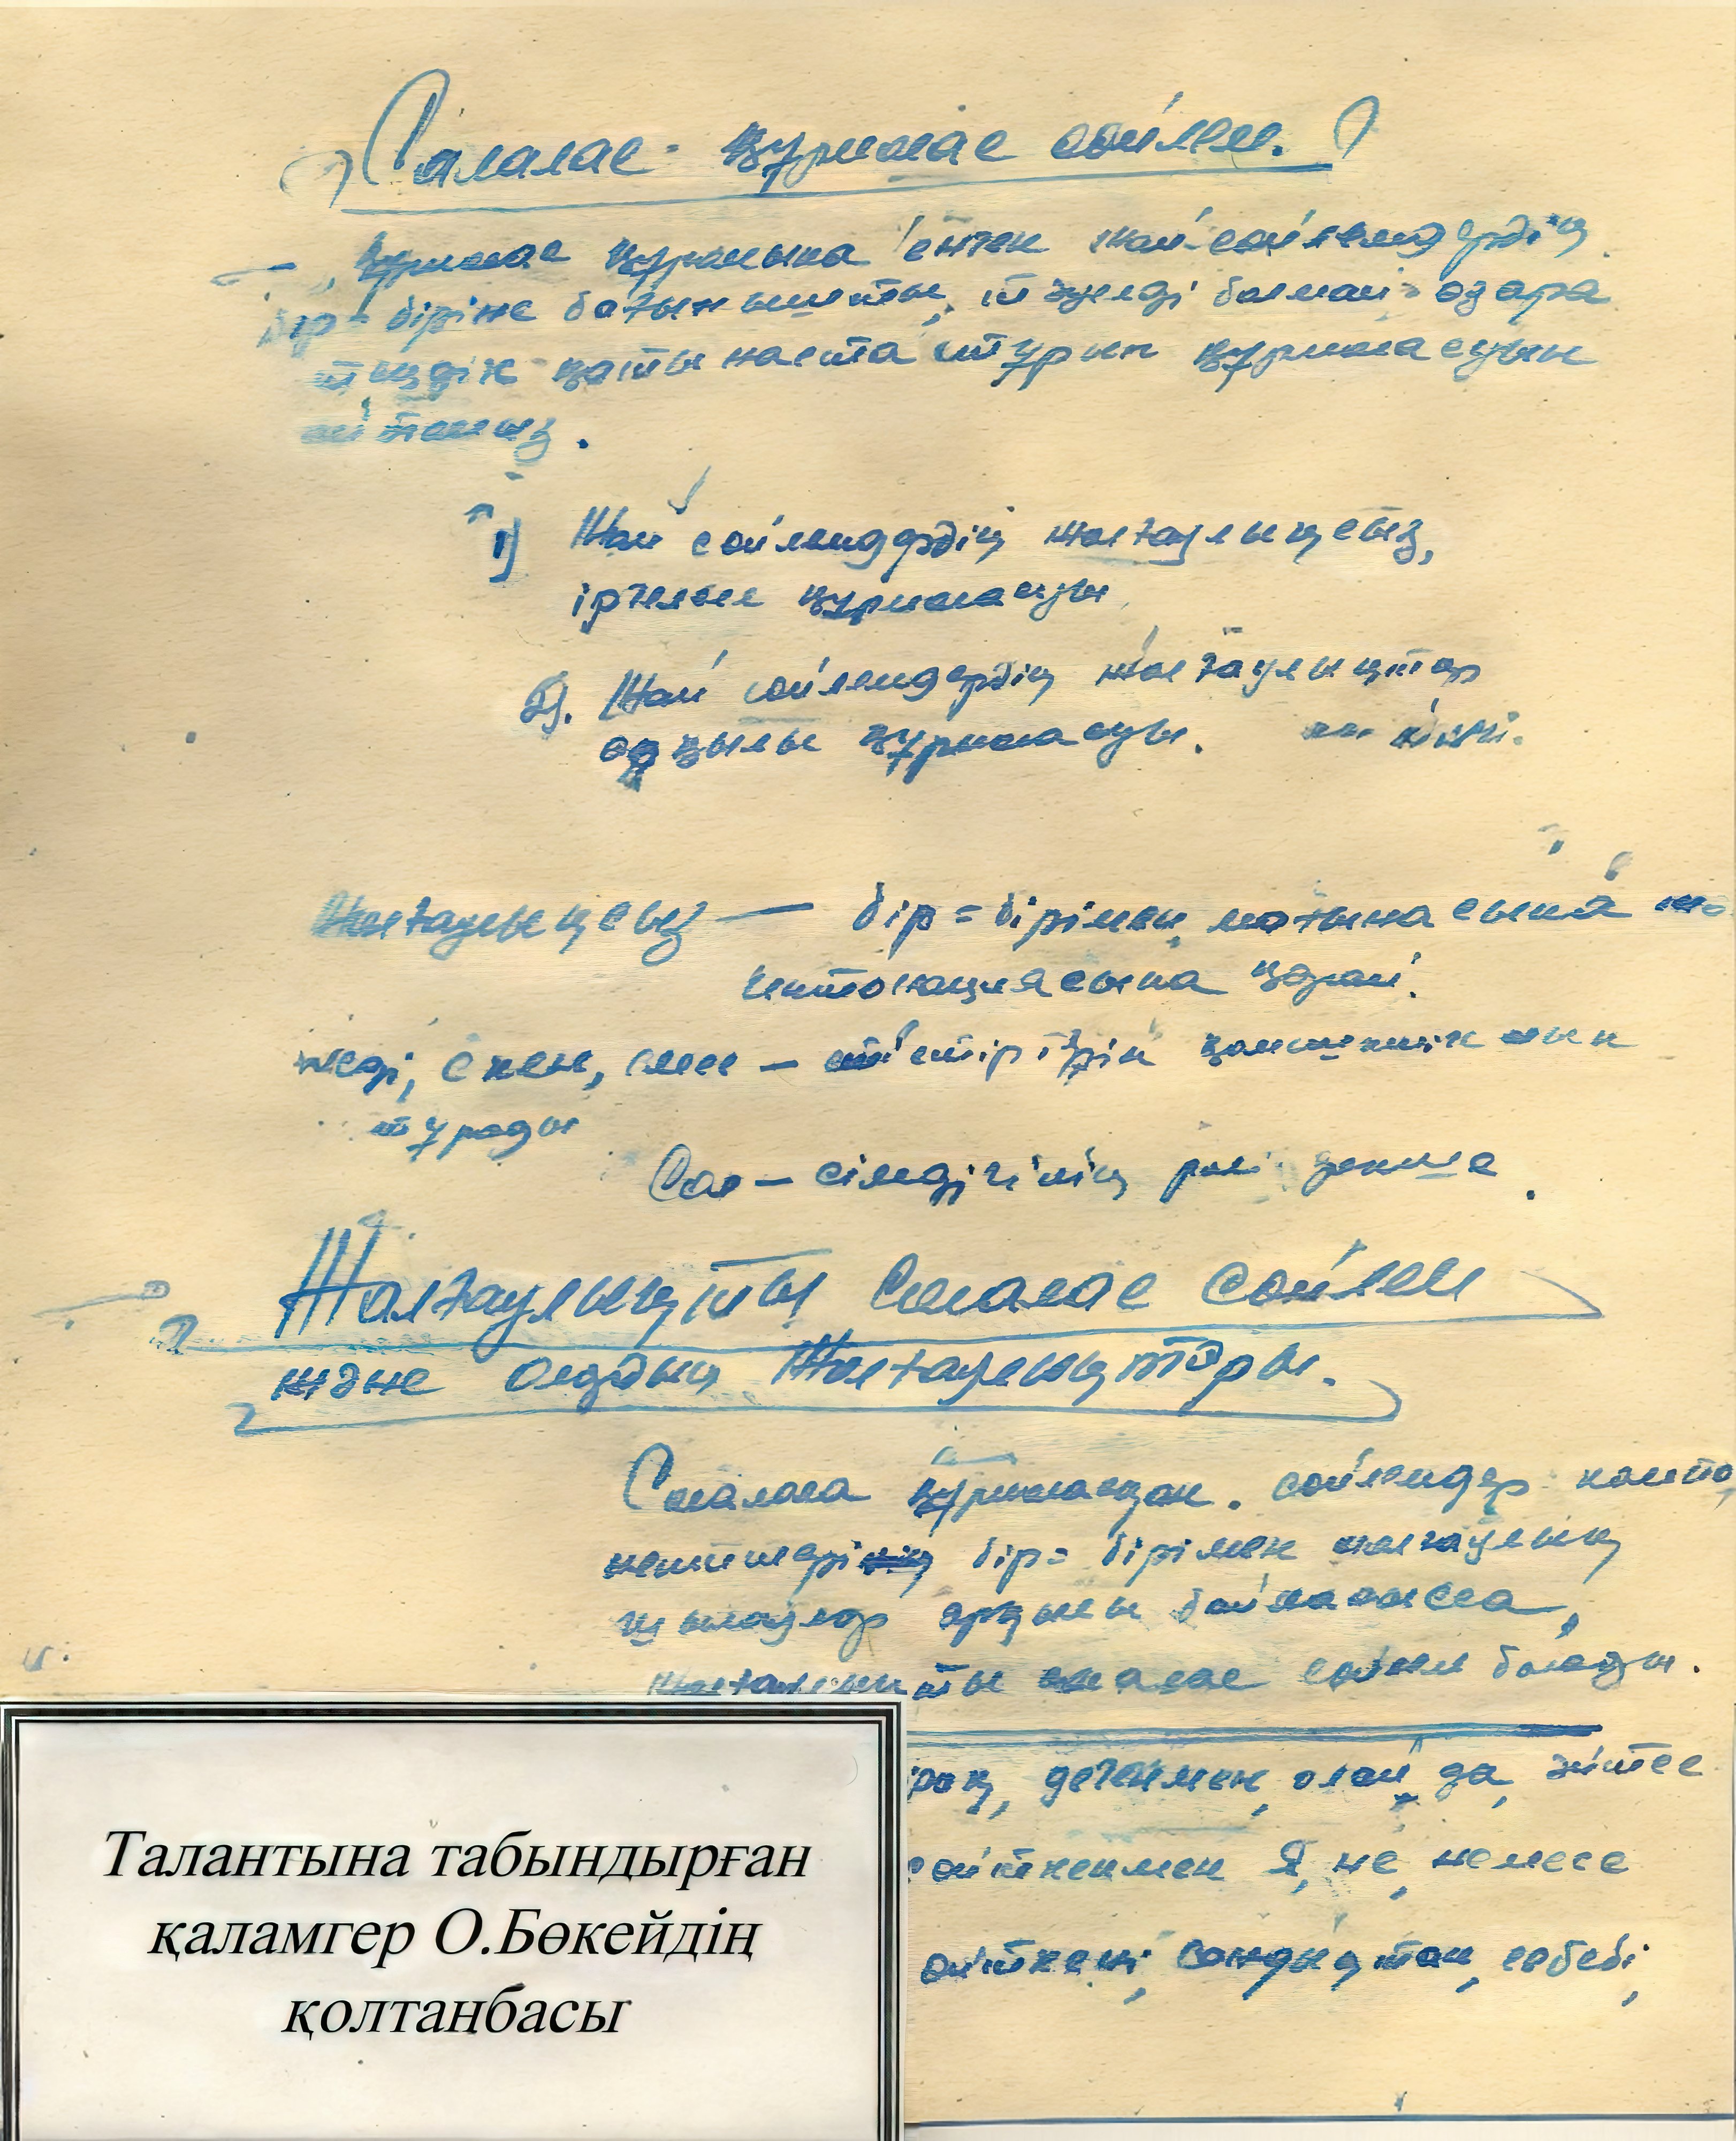 Салалас құрмалас сөйлем.
Құрмалас құрамына енген жай сөйлемдердің
бір=біріне бағынышты, тәуелді болмай=өзара
теңдік қатынаста тұрып құрмаласуын
айтамыз.
1) Жай сөйлемдердің жалғаулықсыз,
іргелес құрмаласуы
2). Жай сөйлемдердің жалғаулықтар
арқылы құрмаласуы.
Жалғаулықсыз — бір=бірімен, мағынасына
интонациясына қарай.
еді, екен, емес —
тұрады
Сол — сілдігінің рөлі ерекше.
Жалғаулықты Салалас сөйлем
және олардың Жалғаулықтары.
Салалас құрмаласқан. сөйлемдер компо
ненттері бір=бірімен жалғаулық
шылаулар арқылы байланысса,
жалғаулықты салалас сөйлем болады.
рақ, дегенмен, олай да, әйтсе
сөйткенмен Я, не, немесе
өйткені, сондықтан, себебі,
Талантына табындырған
қаламгер О.Бөкейдің
қолтаңбасы